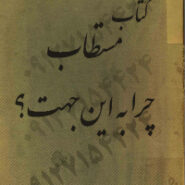 کتاب
مستطاب
چرا به این جهت؟